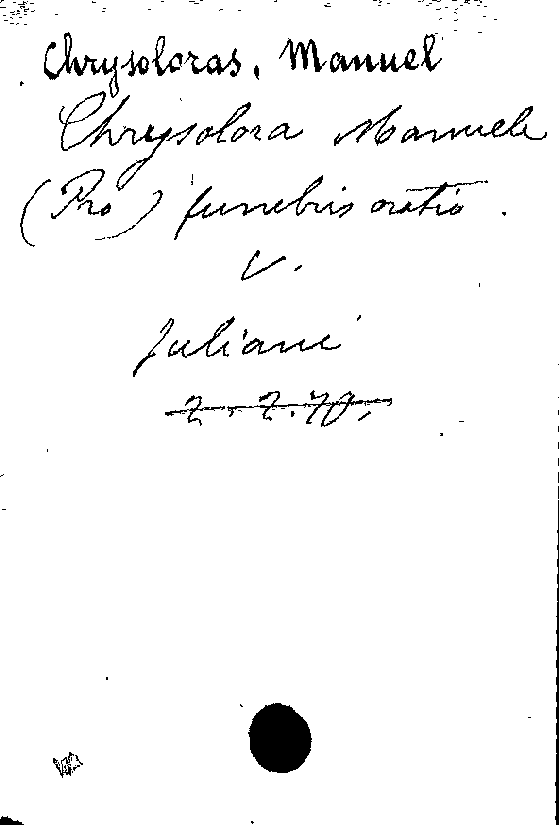 Chrysoloras, Manuel
Chrysolora Manuele
(Pro) funebris oratio.
V.
Juliani
2. 2. 70.